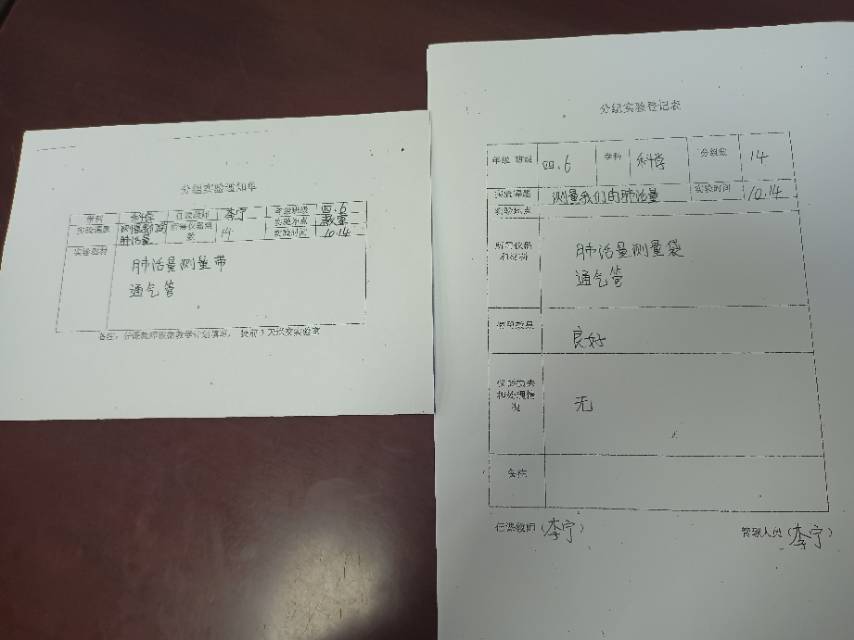 分组实验通知单
学科 科学 任课教师 李宁 年级班级 四.6
实验课题 测量我们的肺活量 所需仪器组数 14 实验地点 教室
实验时间 10.14
实验器材
肺活量测量带
通气管
备注：任课教师根据教学计划填写，提前3天送交实验室
分组实验登记表
年级 班级 四.6 学科 科学 分组数 14
实验课题 测量我们的肺活量 实验时间 10.14
实验地点
所需仪器和材料
肺活量测量袋
通气管
良好
无
任课教师（李宁）
管理人员（李宁）